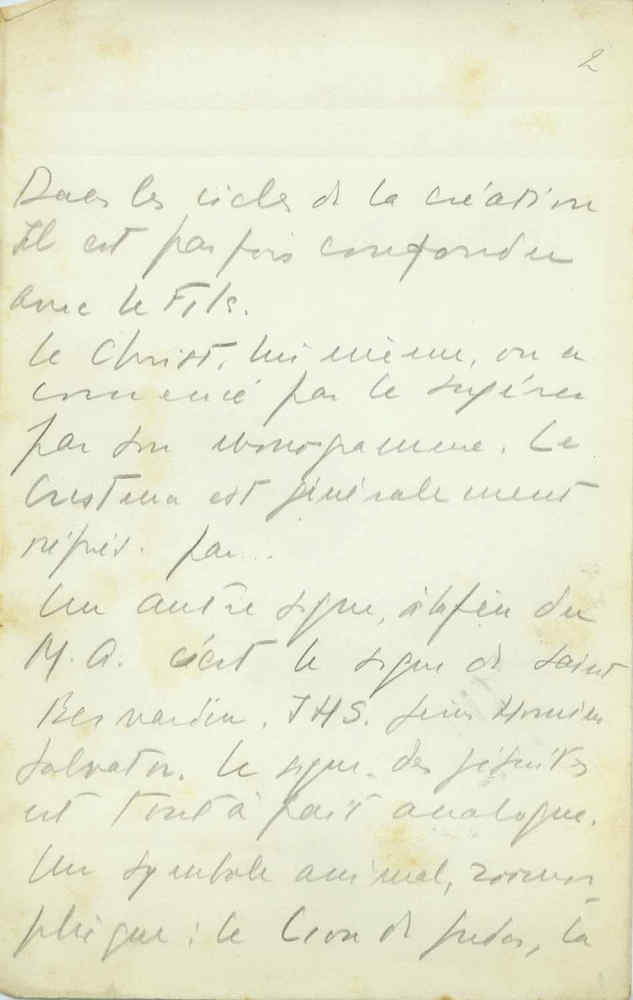 2
Dans les cicles de la création
Il est parfois confondu
avec le Fils.
Le Christ, lui même, on a
commencé par le suggérer
par son monogramme. Le
est généralement
réprés. par...
Un autre signe, à la fin du
M.A. c'est le signe de Saint
Bernardin. IHS. Jesus Hominum
Salvator. Le signe des jésuites
est tout à fait analogue.
Un symbole animal, zoomor
phique : le lion de Juda, la